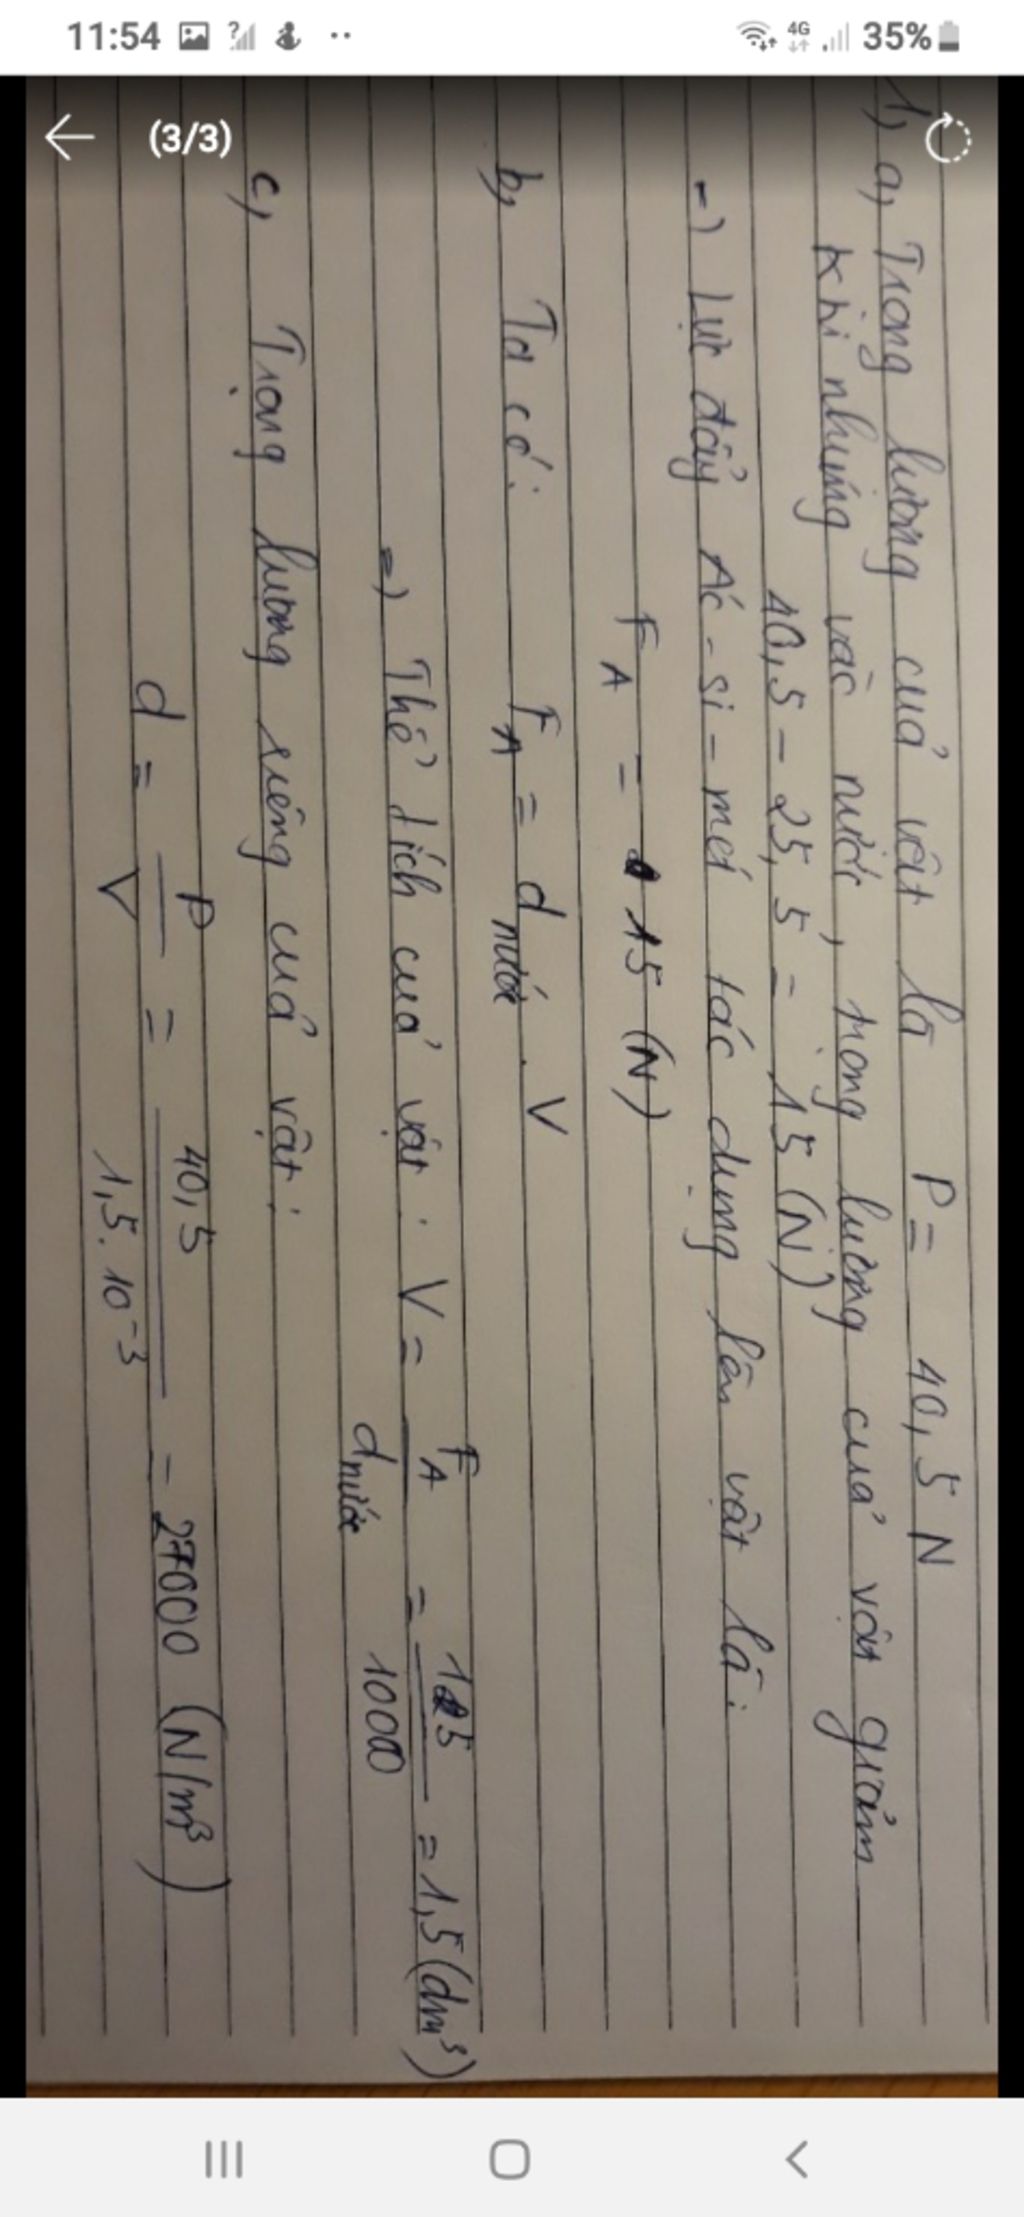 11:54
4G
35%
(3/3)
1, a, Trọng lượng của vật là P = 40,5 N
Khi nhúng vào nước, trọng lượng của vật giảm
40,5 - 25,5 = 15 (N)
=) Lực đẩy Ác-si-mét tác dụng lên vật là:
FA = 15 (N)
b, Ta có: FA = dnước . V
=) Thể tích của vật: V = FA / dnước = 15 / 1000 = 1,5 (dm³)
c, Trọng lượng riêng của vật:
d = P / V = 40,5 / 1,5.10⁻³ = 27000 (N/m³)